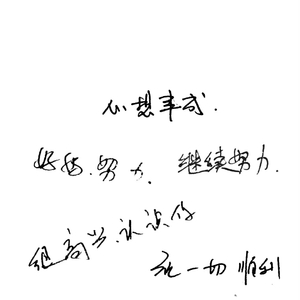 心想事成.
好好努力. 继续努力.
很高兴认识你
祝一切顺利